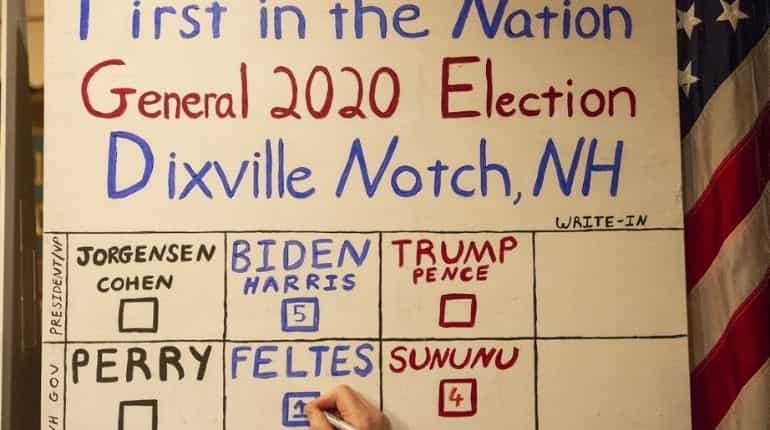 First in the Nation
General 2020 Election
Dixville Notch, NH
WRITE-IN
PRESIDENT/VP
JORGENSEN
COHEN
BIDEN
HARRIS
5
TRUMP
PENCE
GOV
PERRY
FELTES
1
SUNUNU
4